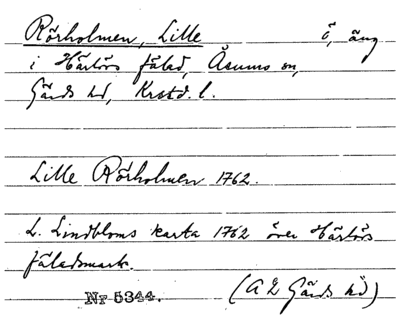 Rörholmen, Lille ö, äng
i Härlövs fälad, Åsums sn,
Gärds hd, Krstd. l.
Lille Rörholmen 1762.
L. Lindbloms karta 1762 över Härlövs
fäladsmark.
Nr 5344. (AL Gärds hd)